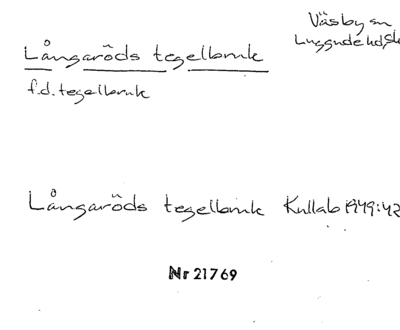 Väsby sn
Långaröds tegelbruk
Luggude hd, Sk
f.d. tegelbruk
Långaröds tegelbruk Kullab 1949:42
Nr 21769